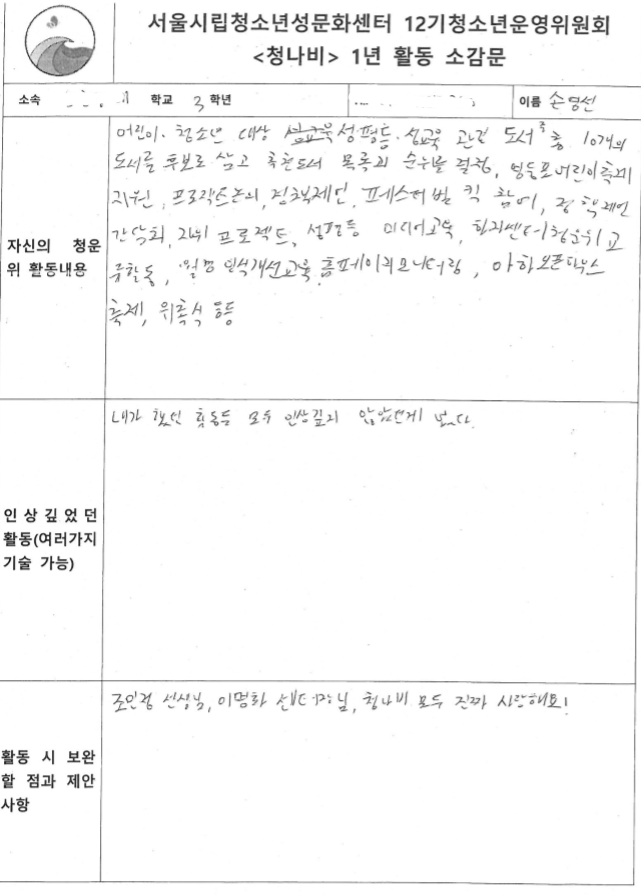 서울시립청소년성문화센터 12기청소년운영위원회
<청나비> 1년 활동 소감문
소속 학교 3학년 이름 손영선
자신의 청운
위 활동내용
어린이·청소년 대상 성교육 성평등·성교육 관련 도서 중 총 10개의
도서를 후보로 삼고 추천도서 목록과 순위를 결정, 영등포어린이축제
지원, 프로젝트논의, 정책제안, 페스티벌 킥 참여, 정책제안
간담회, 자위 프로젝트, 성평등 미디어교육, 타지센터청운위 교
류활동, 월경 인식개선교육, 홈페이지모니터링, 아하오픈하우스
축제, 위촉식 등등
인상 깊었던
활동(여러가지
기술 가능)
내가 했던 활동들 모두 인상깊지 않았던게 없다.
활동 시 보완
할 점과 제안
사항
선생님, 이명화 센터장님, 청나비 모두 진짜 사랑해요!